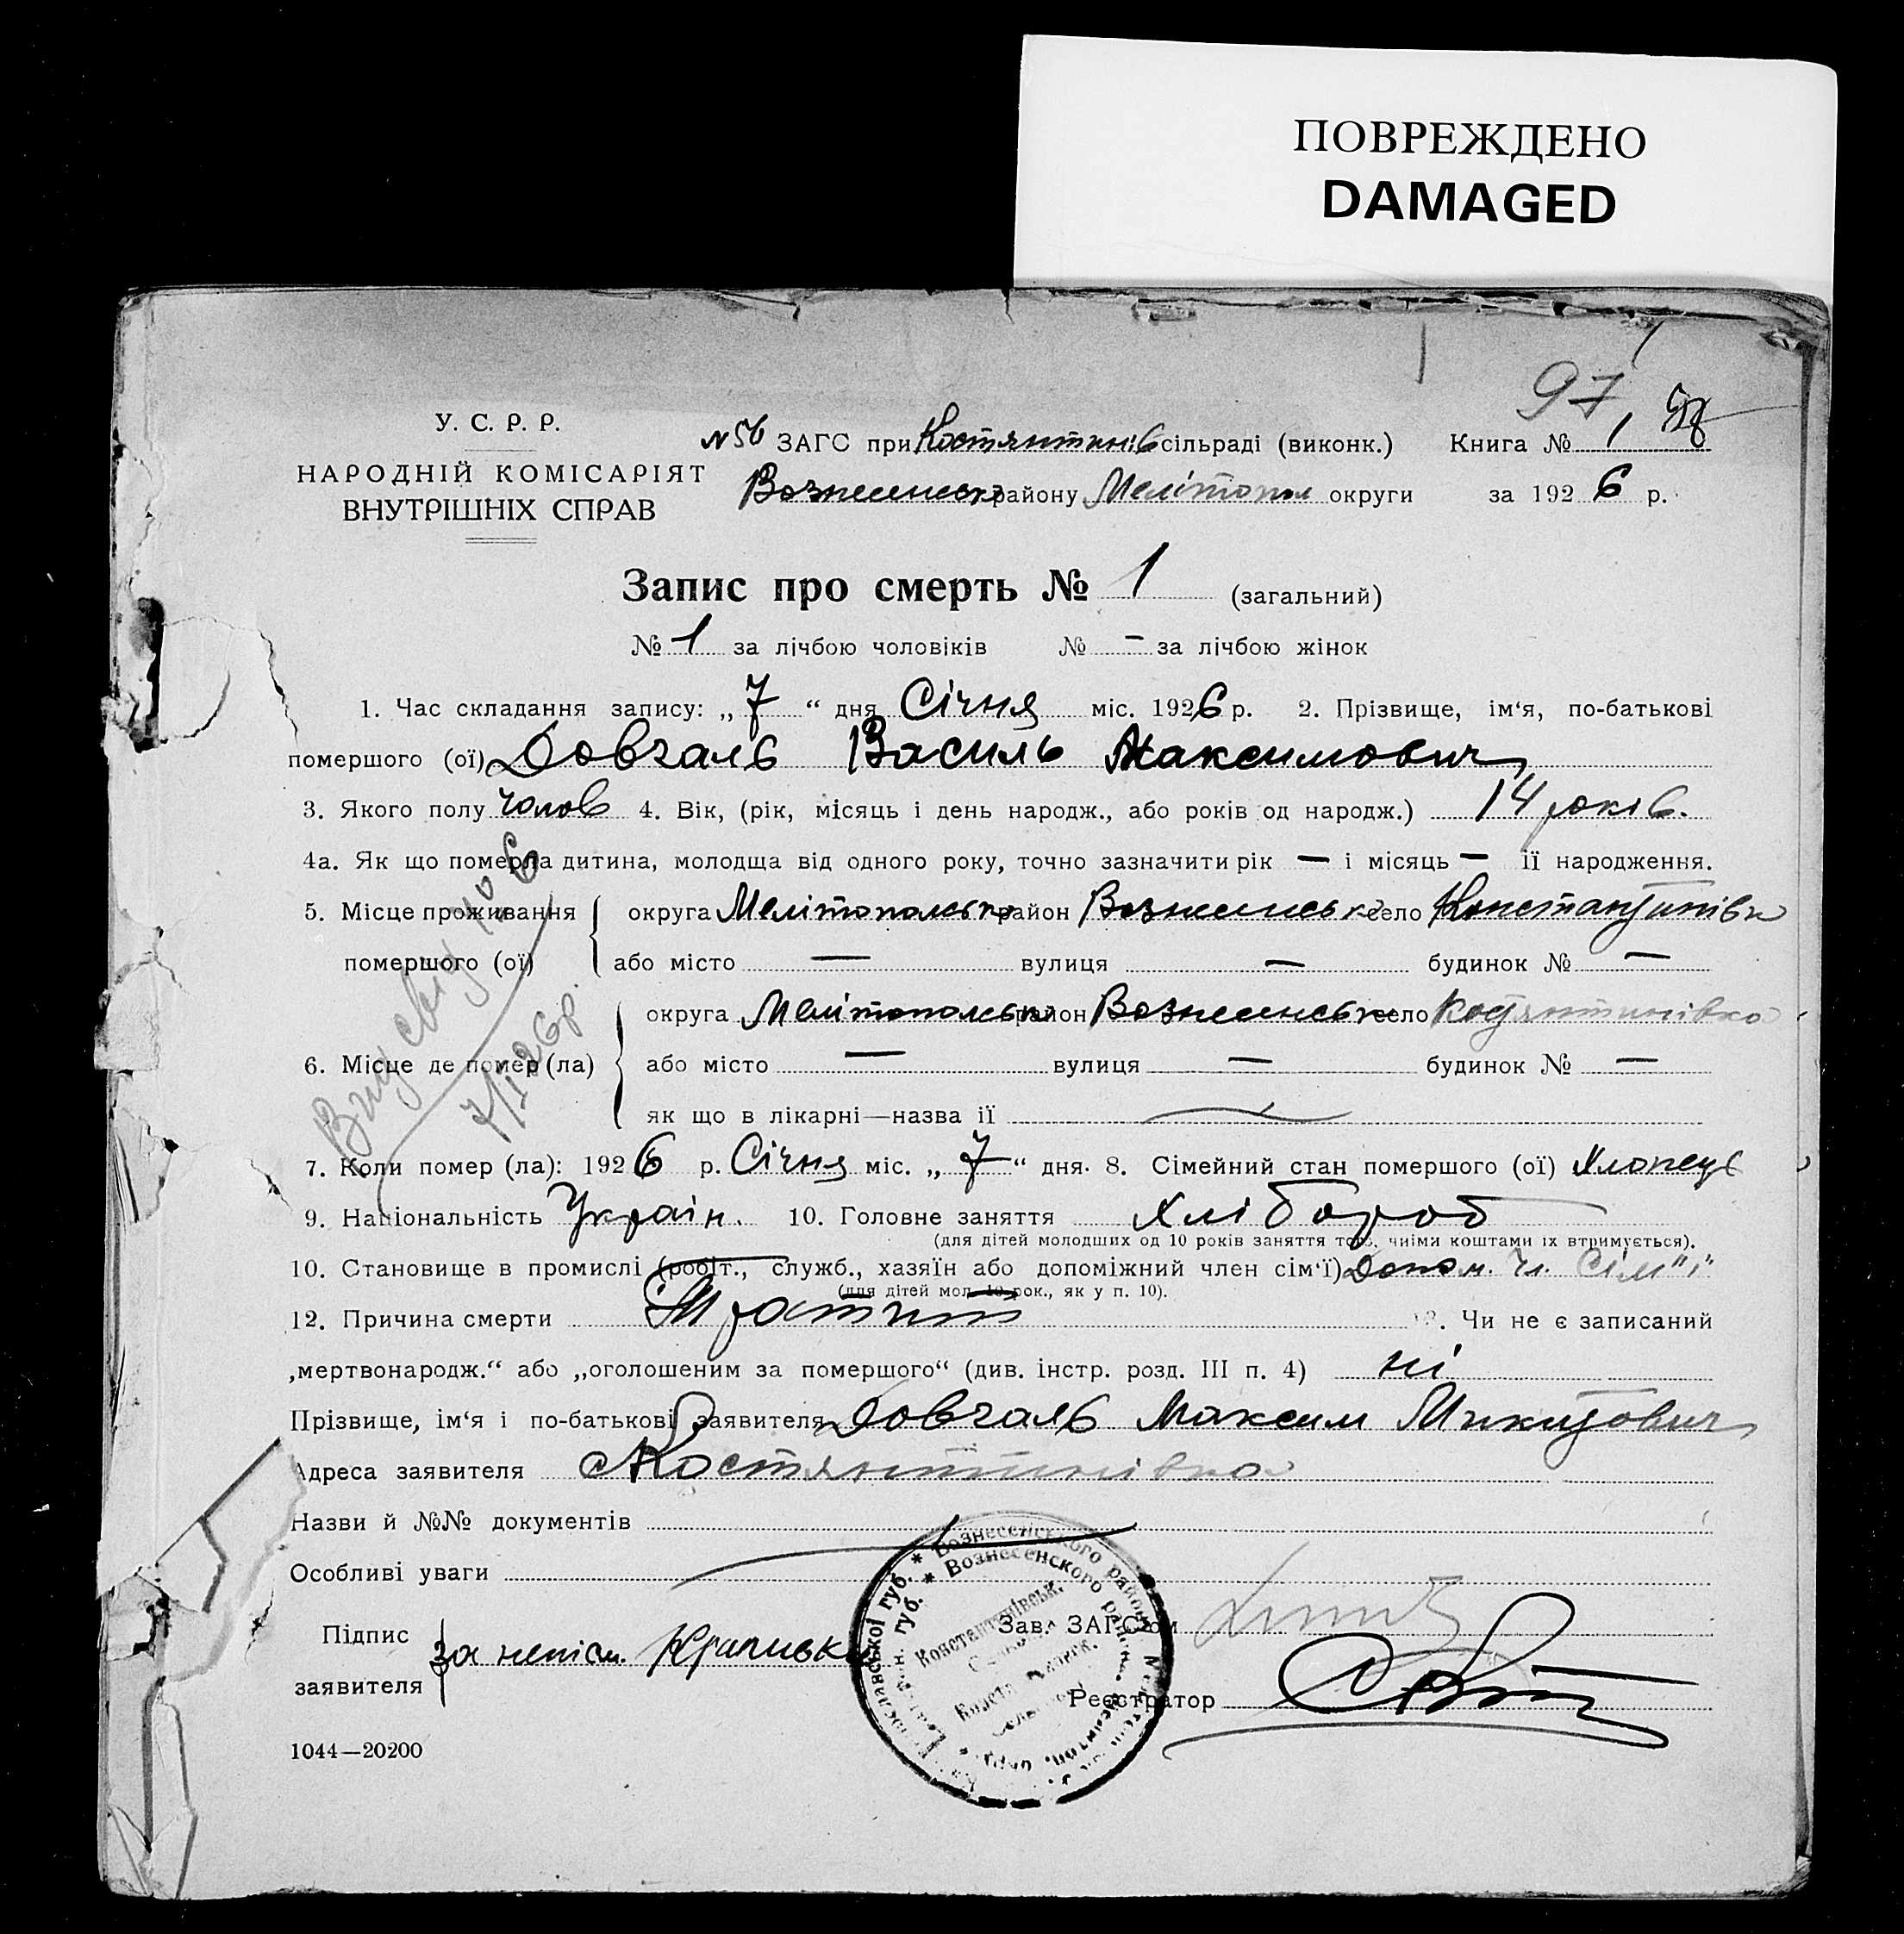 ПОВРЕЖДЕНО
DAMAGED
97
У. С. Р. Р.
НАРОДНІЙ КОМІСАРІЯТ
ВНУТРІШНІХ СПРАВ
№ 56 ЗАГС при Костянтинів сільраді (виконк.) Книга № 1
Вознесенськ району Мелітопол округи за 1926 р.
Запис про смерть № 1 (загальний)
№ 1 за лічбою чоловіків № – за лічбою жінок
1. Час складання запису: „ 7 “ дня Січня міс. 1926 р. 2. Прізвище, ім‘я, по-батькові
помершого (ої) Довгаль Василь Максимович
3. Якого полу чолов 4. Вік, (рік, місяць і день народж., або років од народж.) 14 років.
4а. Як що померла дитина, молодща від одного року, точно зазначити рік — і місяць — її народження.
5. Місце проживання помершого (ої) округа Мелітопольсько район Вознесенсько село Константинівк
або місто — вулиця — будинок № —
6. Місце де помер (ла) округа Мелітопольсько район Вознесенсько село Костянтинівко
або місто — вулиця — будинок № —
як що в лікарні—назва ії
7/I 26 р.
7. Коли помер (ла): 1926 р. Січня міс. „ 7 “ дня. 8. Сімейний стан помершого (ої) Хлопець
9. Національність Україн. 10. Головне заняття Хлібороб
(для дітей молодших од 10 років заняття того, чиїми коштами їх втримується).
10. Становище в промислі (робіт., служб., хазяїн або допоміжний член сім‘ї) Допом. Чл. Сім"ї"
(для дітей мол. 10 рок., як у п. 10).
12. Причина смерти . Чи не є записаний
„мертвонародж.“ або „оголошеним за помершого“ (див. інстр. розд. III п. 4) ні
Прізвище, ім‘я і по-батькові заявителя Довгаль Максим Микитович
Адреса заявителя Костянтинівка
Назви й №№ документів
Особливі уваги
Підпис заявителя За непісм. Зав. ЗАГС‘ом
Реєстратор
* Вознесенського район
* Вознесенского район
Константинівськ.
1044—20200